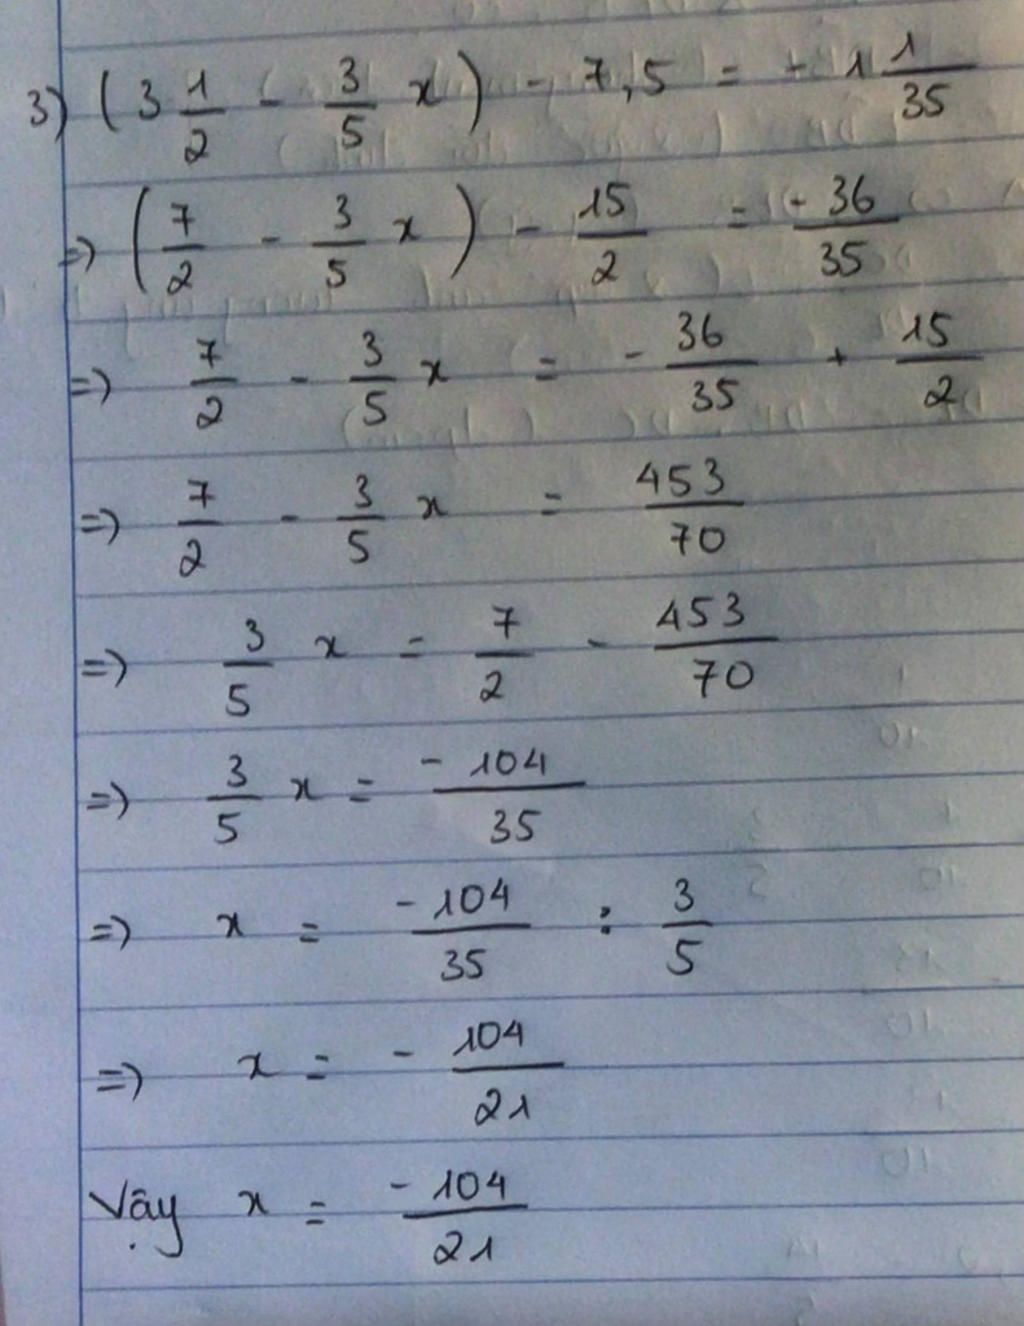 3) (3 1/2 - 3/5 x) - 7,5 = - 1 1/35
=> (7/2 - 3/5 x) - 15/2 = - 36/35
=> 7/2 - 3/5 x = - 36/35 + 15/2
=> 7/2 - 3/5 x = 453/70
=> 3/5 x = 7/2 - 453/70
=> 3/5 x = - 104/35
=> x = - 104/35 : 3/5
=> x = - 104/21
Vậy x = - 104/21